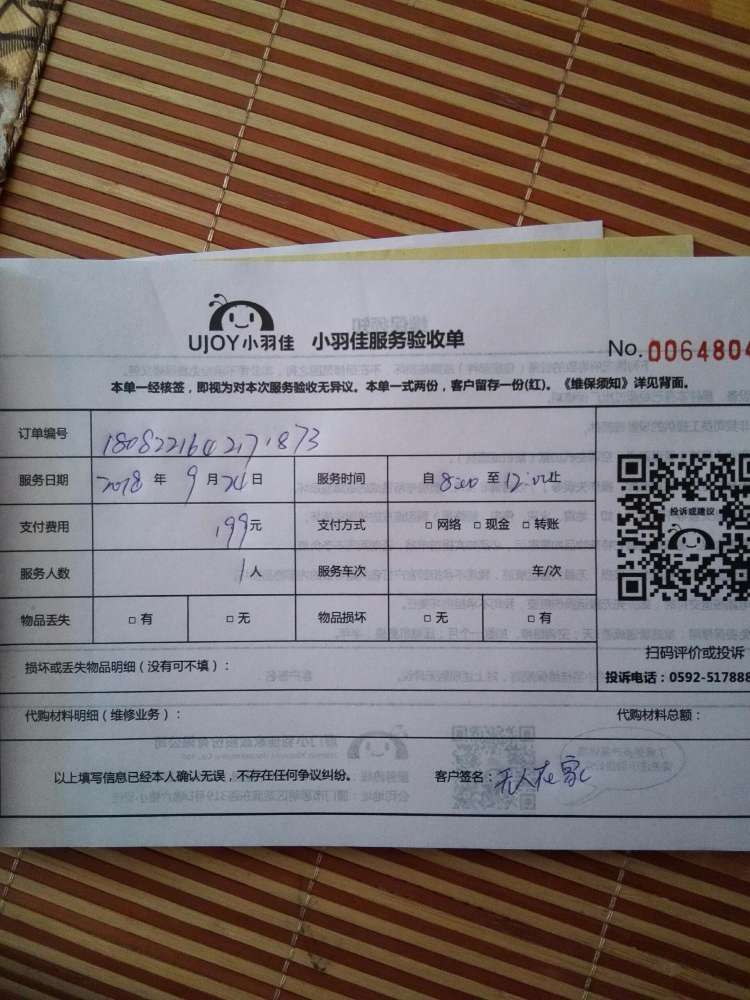 UJOY小羽佳 小羽佳服务验收单
No.0064804
本单一经核签，即视为对本次服务验收无异议。本单一式两份，客户留存一份(红)。《维保须知》详见背面。
订单编号 180822164271873
服务日期 2018 年 9 月 24 日 服务时间 自 8:00 至 12:00 止
支付费用 199元 支付方式 □ 网络 □ 现金 □ 转账
服务人数 1 人 服务车次 车/次
物品丢失 □ 有 □ 无 物品损坏 □ 无 □ 有
损坏或丢失物品明细（没有可不填）：
投诉或建议
扫码评价或投诉
投诉电话：0592-517888
代购材料明细（维修业务）： 代购材料总额：
以上填写信息已经本人确认无误，不存在任何争议纠纷。 客户签名：无人在家